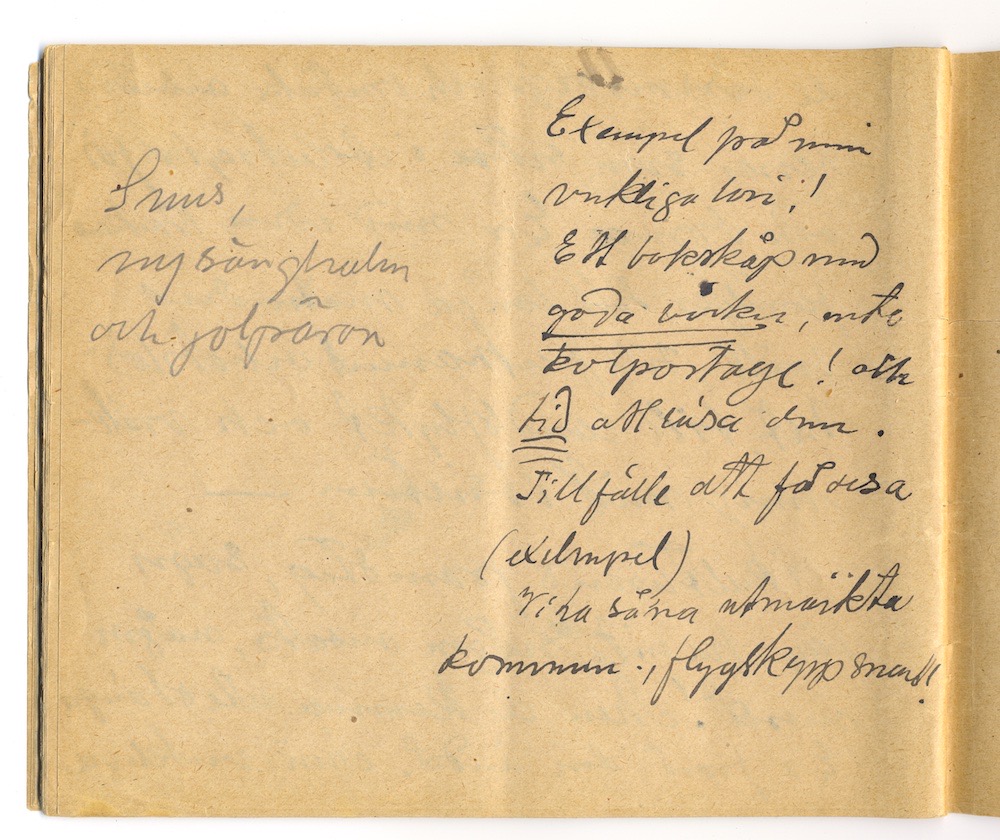 Snus,
ny sänghalm
och jolpäron
Exempel på min
verkliga lori!
Ett bokskåp med
goda böcker, inte
kolportage! och
tid att läsa dem.
Tillfälle att få resa
(exempel)
Vi ha såna utmärkta
kommun., flygskepp